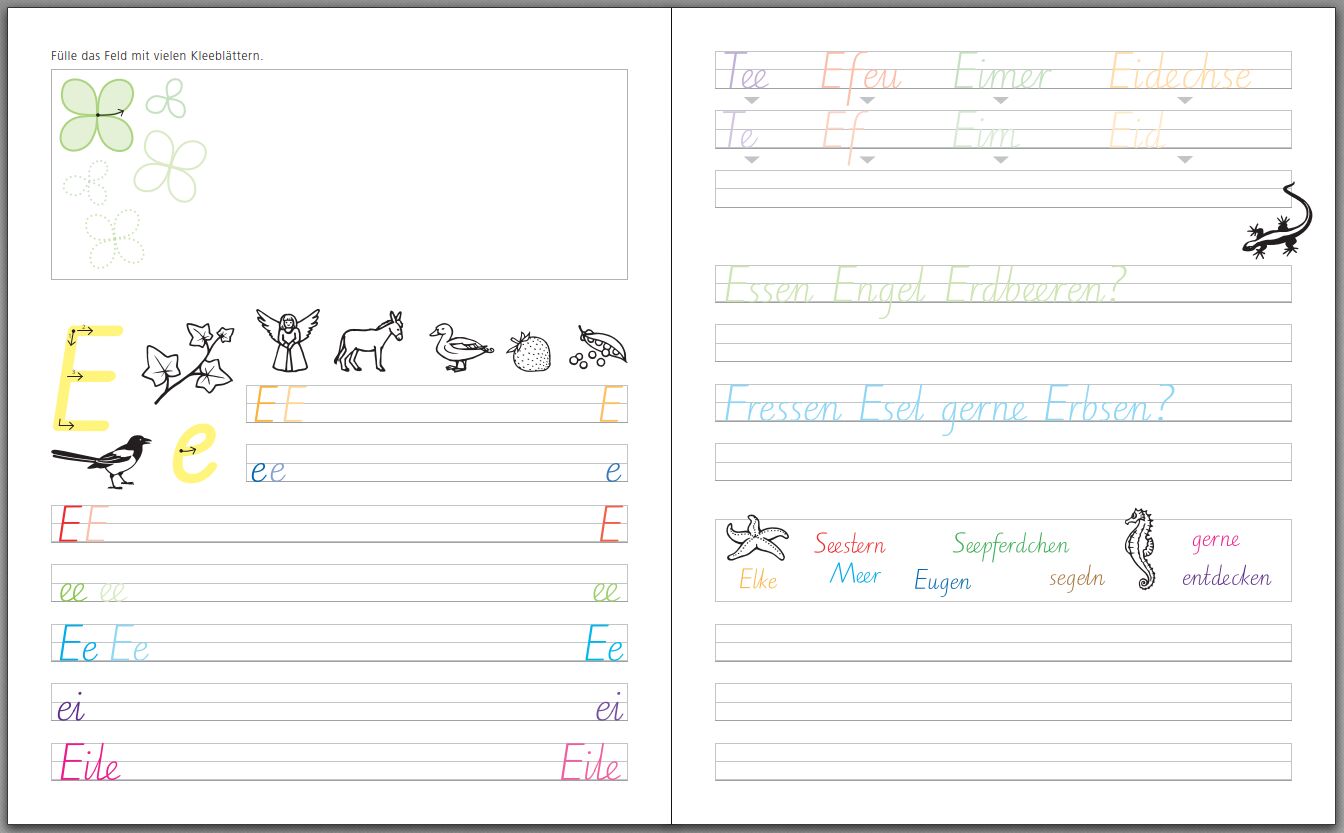 Fülle das Feld mit vielen Kleeblättern.
E
e
1 2 3
E E E
e e e
E E E
ee ee ee
Ee Ee Ee
ei ei
Eile Eile
Tee Efeu Eimer Eidechse
Te Ef Eim Eid
Essen Engel Erdbeeren?
Fressen Esel gerne Erbsen?
Seestern Seepferdchen gerne
Elke Meer Eugen segeln entdecken